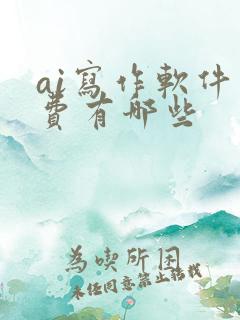 ai寫作軟件
費有哪些
為喫所困
未經同意禁止轉載